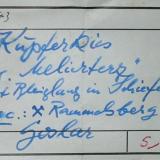 Kupferkies
„Melierterz"
Bleiglanz in Schiefer
oc.: ⚒ Rammelsberg
Goslar
5